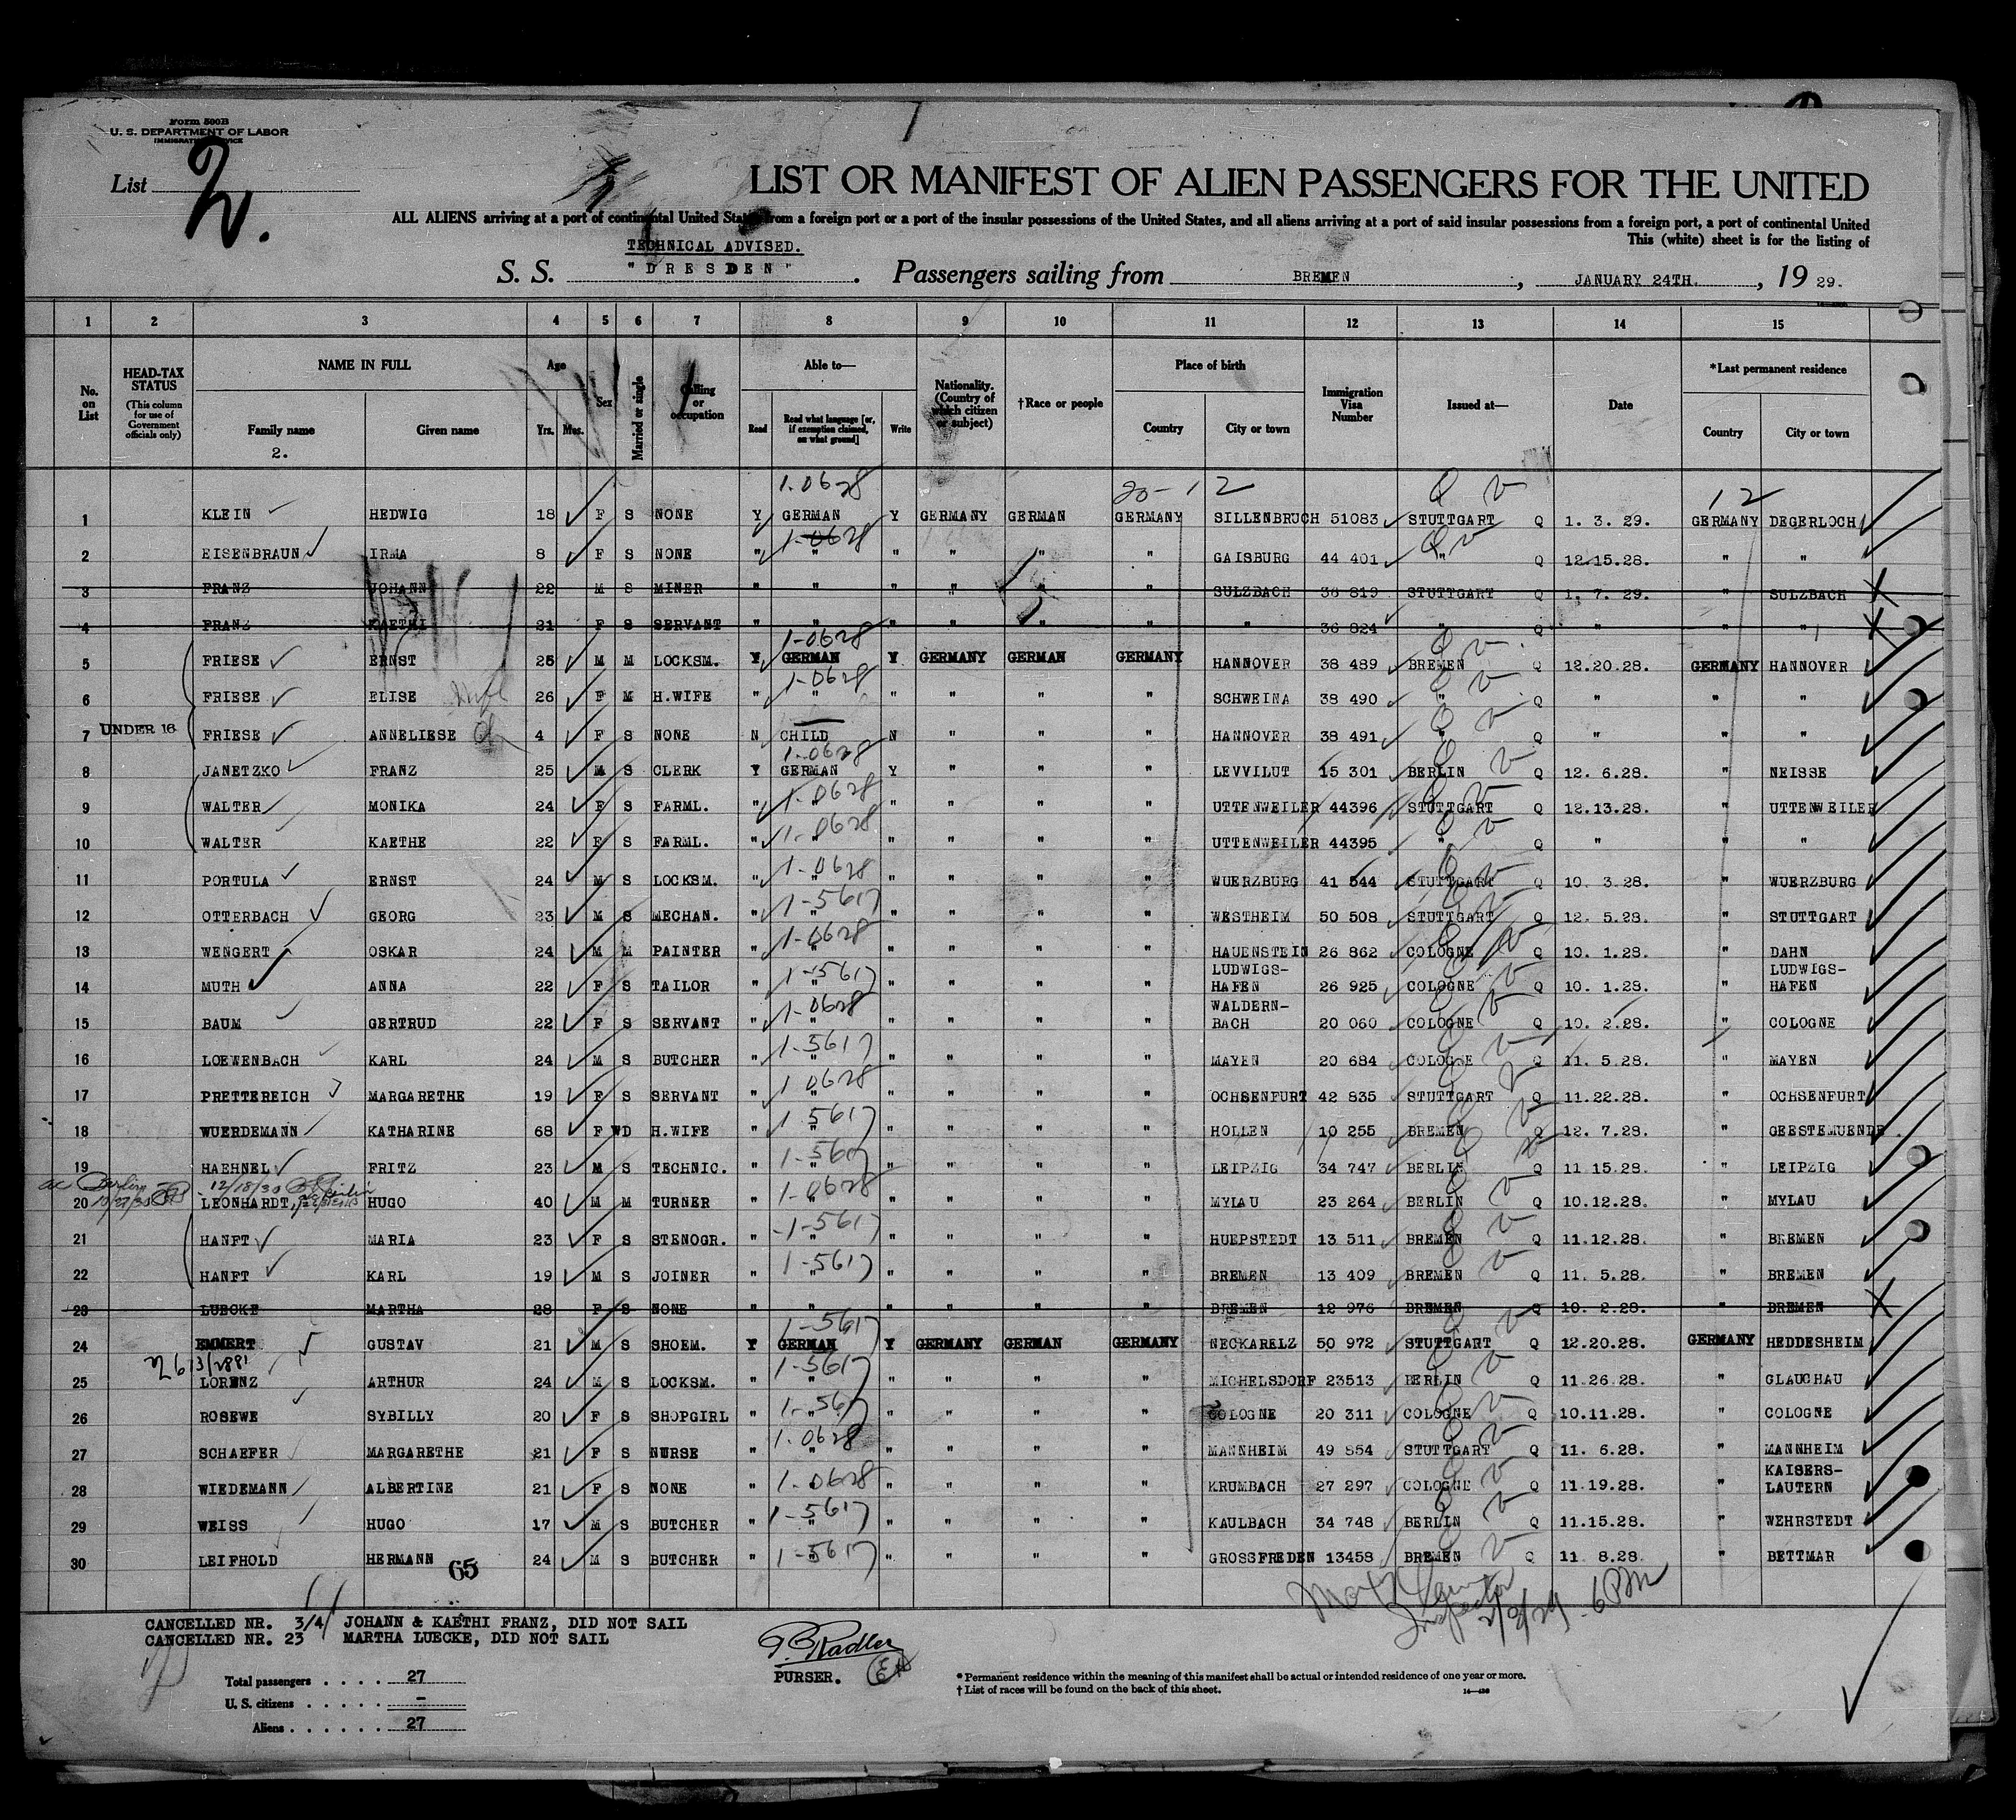 Form 500B
U. S. DEPARTMENT OF LABOR
IMMIGRATION SERVICE
List 2.
LIST OR MANIFEST OF ALIEN PASSENGERS FOR THE UNITED
ALL ALIENS arriving at a port of continental United States from a foreign port or a port of the insular possessions of the United States, and all aliens arriving at a port of said insular possessions from a foreign port, a port of continental United
This (white) sheet is for the listing of
TECHNICAL ADVISED.
S. S. "DRESDEN". Passengers sailing from BREMEN, JANUARY 24TH., 19 29.
1 2 3 4 5 6 7 8 9 10 11 12 13 14 15
No. on List
HEAD-TAX STATUS (This column for use of Government officials only)
NAME IN FULL Family name Given name
2.
Age Yrs. Mos.
Sex
Married or single
Calling or occupation
Able to— Read Read what language [or, if exemption claimed, on what ground] Write
Nationality. (Country of which citizen or subject)
†Race or people
Place of birth Country City or town
Immigration Visa Number
Issued at—
Date
*Last permanent residence Country City or town
1-0628 20-12 Q V 12
1 KLEIN HEDWIG 18 F S NONE Y GERMAN Y GERMANY GERMAN GERMANY SILLENBRUCH 51083 STUTTGART Q 1. 3. 29. GERMANY DEGERLOCH
1-0628 QV
2 EISENBRAUN IRMA 8 F S NONE " " " " " " GAISBURG 44 401 " Q 12.15.28. " "
3 FRANZ JOHANN 22 M S MINER " " " " " " SULZBACH 36 819 STUTTGART Q 1. 7. 29. " SULZBACH X
4 FRANZ KAETHI 21 F S SERVANT " " " " " " " 36 824 " Q " " " X
1-0628
5 FRIESE ERNST 25 M M LOCKSM. Y GERMAN Y GERMANY GERMAN GERMANY HANNOVER 38 489 BREMEN Q 12.20.28. GERMANY HANNOVER
1-0628
6 FRIESE ELISE Wife 26 F M H.WIFE " " " " " " SCHWEINA 38 490 " Q " " "
UNDER 16
7 FRIESE ANNELIESE Ch 4 F S NONE N CHILD N " " " HANNOVER 38 491 " Q " " "
1-0628
8 JANETZKO FRANZ 25 M S CLERK Y GERMAN Y " " " LEVVILUT 15 301 BERLIN Q 12. 6.28. " NEISSE
1-0628
9 WALTER MONIKA 24 F S FARML. " " " " " " UTTENWEILER 44396 STUTTGART Q 12.13.28. " UTTENWEILER
1-0628
10 WALTER KAETHE 22 F S FARML. " " " " " " UTTENWEILER 44395 " Q " " "
1-0628
11 PORTULA ERNST 24 M S LOCKSM. " " " " " WUERZBURG 41 544 STUTTGART Q 10. 3.28. " WUERZBURG
1-5617
12 OTTERBACH GEORG 23 M S MECHAN. " " " " " " WESTHEIM 50 508 STUTTGART Q 12. 5.28. " STUTTGART
1-0628
13 WENGERT OSKAR 24 M M PAINTER " " " " " " HAUENSTEIN 26 862 COLOGNE Q 10. 1.28. " DAHN
1-5617
14 MUTH ANNA 22 F S TAILOR " " " " " " LUDWIGS-HAFEN 26 925 COLOGNE Q 10. 1.28. " LUDWIGS-HAFEN
1-0628
15 BAUM GERTRUD 22 F S SERVANT " " " " " " WALDERN-BACH 20 060 COLOGNE Q 10. 2.28. " COLOGNE
1-5617
16 LOEWENBACH KARL 24 M S BUTCHER " " " " " " MAYEN 20 684 COLOGNE Q 11. 5.28. " MAYEN
1 0628
17 PRETTEREICH MARGARETHE 19 F S SERVANT " " " " " " OCHSENFURT 42 835 STUTTGART Q 11.22.28. " OCHSENFURT
1 5617
18 WUERDEMANN KATHARINE 68 F WD H.WIFE " " " " " " HOLLEN 10 255 BREMEN Q 12. 7.28. " GEESTEMUENDE
1-5617
19 HAEHNEL FRITZ 23 M S TECHNIC. " " " " " " LEIPZIG 34 747 BERLIN Q 11.15.28. " LEIPZIG
Berlin 10/27/30 12/18/30
1-0628
20 LEONHARDT, HUGO 40 M M TURNER " " " " " " MYLAU 23 264 BERLIN Q 10.12.28. " MYLAU
1-5617
21 HANFT MARIA 23 F S STENOGR. " " " " " " HUEPSTEDT 13 511 BREMEN Q 11.12.28. " BREMEN
1-5617
22 HANFT KARL 19 M S JOINER " " " " " " BREMEN 13 409 BREMEN Q 11. 5.28. " BREMEN
23 LUECKE MARTHA 28 F S NONE " " " " " " BREMEN 12 976 BREMEN Q 10. 2.28. " BREMEN X
1-5617
24 EMMERT GUSTAV 21 M S SHOEM. Y GERMAN Y GERMANY GERMAN GERMANY NECKARELZ 50 972 STUTTGART Q 12.20.28. GERMANY HEDDESHEIM
1-5617
25 LORENZ ARTHUR 24 M S LOCKSM. " " " " " " MICHELSDORF 23513 BERLIN Q 11.26.28. " GLAUCHAU
1-5617
26 ROSEWE SYBILLY 20 F S SHOPGIRL " " " " " " COLOGNE 20 311 COLOGNE Q 10.11.28. " COLOGNE
1-0628
27 SCHAEFER MARGARETHE 21 F S NURSE " " " " " " MANNHEIM 49 854 STUTTGART Q 11. 6.28. " MANNHEIM
1-0628
28 WIEDEMANN ALBERTINE 21 F S NONE " " " " " " KRUMBACH 27 297 COLOGNE Q 11.19.28. " KAISERS-LAUTERN
1-5617
29 WEISS HUGO 17 M S BUTCHER " " " " " " KAULBACH 34 748 BERLIN Q 11.15.28. " WEHRSTEDT
1-5617
30 LEIFHOLD HERMANN 24 M S BUTCHER " " " " " " GROSSFREDEN 13458 BREMEN Q 11 8.28. " BETTMAR
65
Inspector 2/3/29 - 6 PM
CANCELLED NR. 3/4/ JOHANN & KAETHI FRANZ, DID NOT SAIL
CANCELLED NR. 23 MARTHA LUECKE, DID NOT SAIL
PURSER.
Total passengers . . . . 27
U. S. citizens . . . . . –
Aliens . . . . . . 27
* Permanent residence within the meaning of this manifest shall be actual or intended residence of one year or more.
† List of races will be found on the back of this sheet.